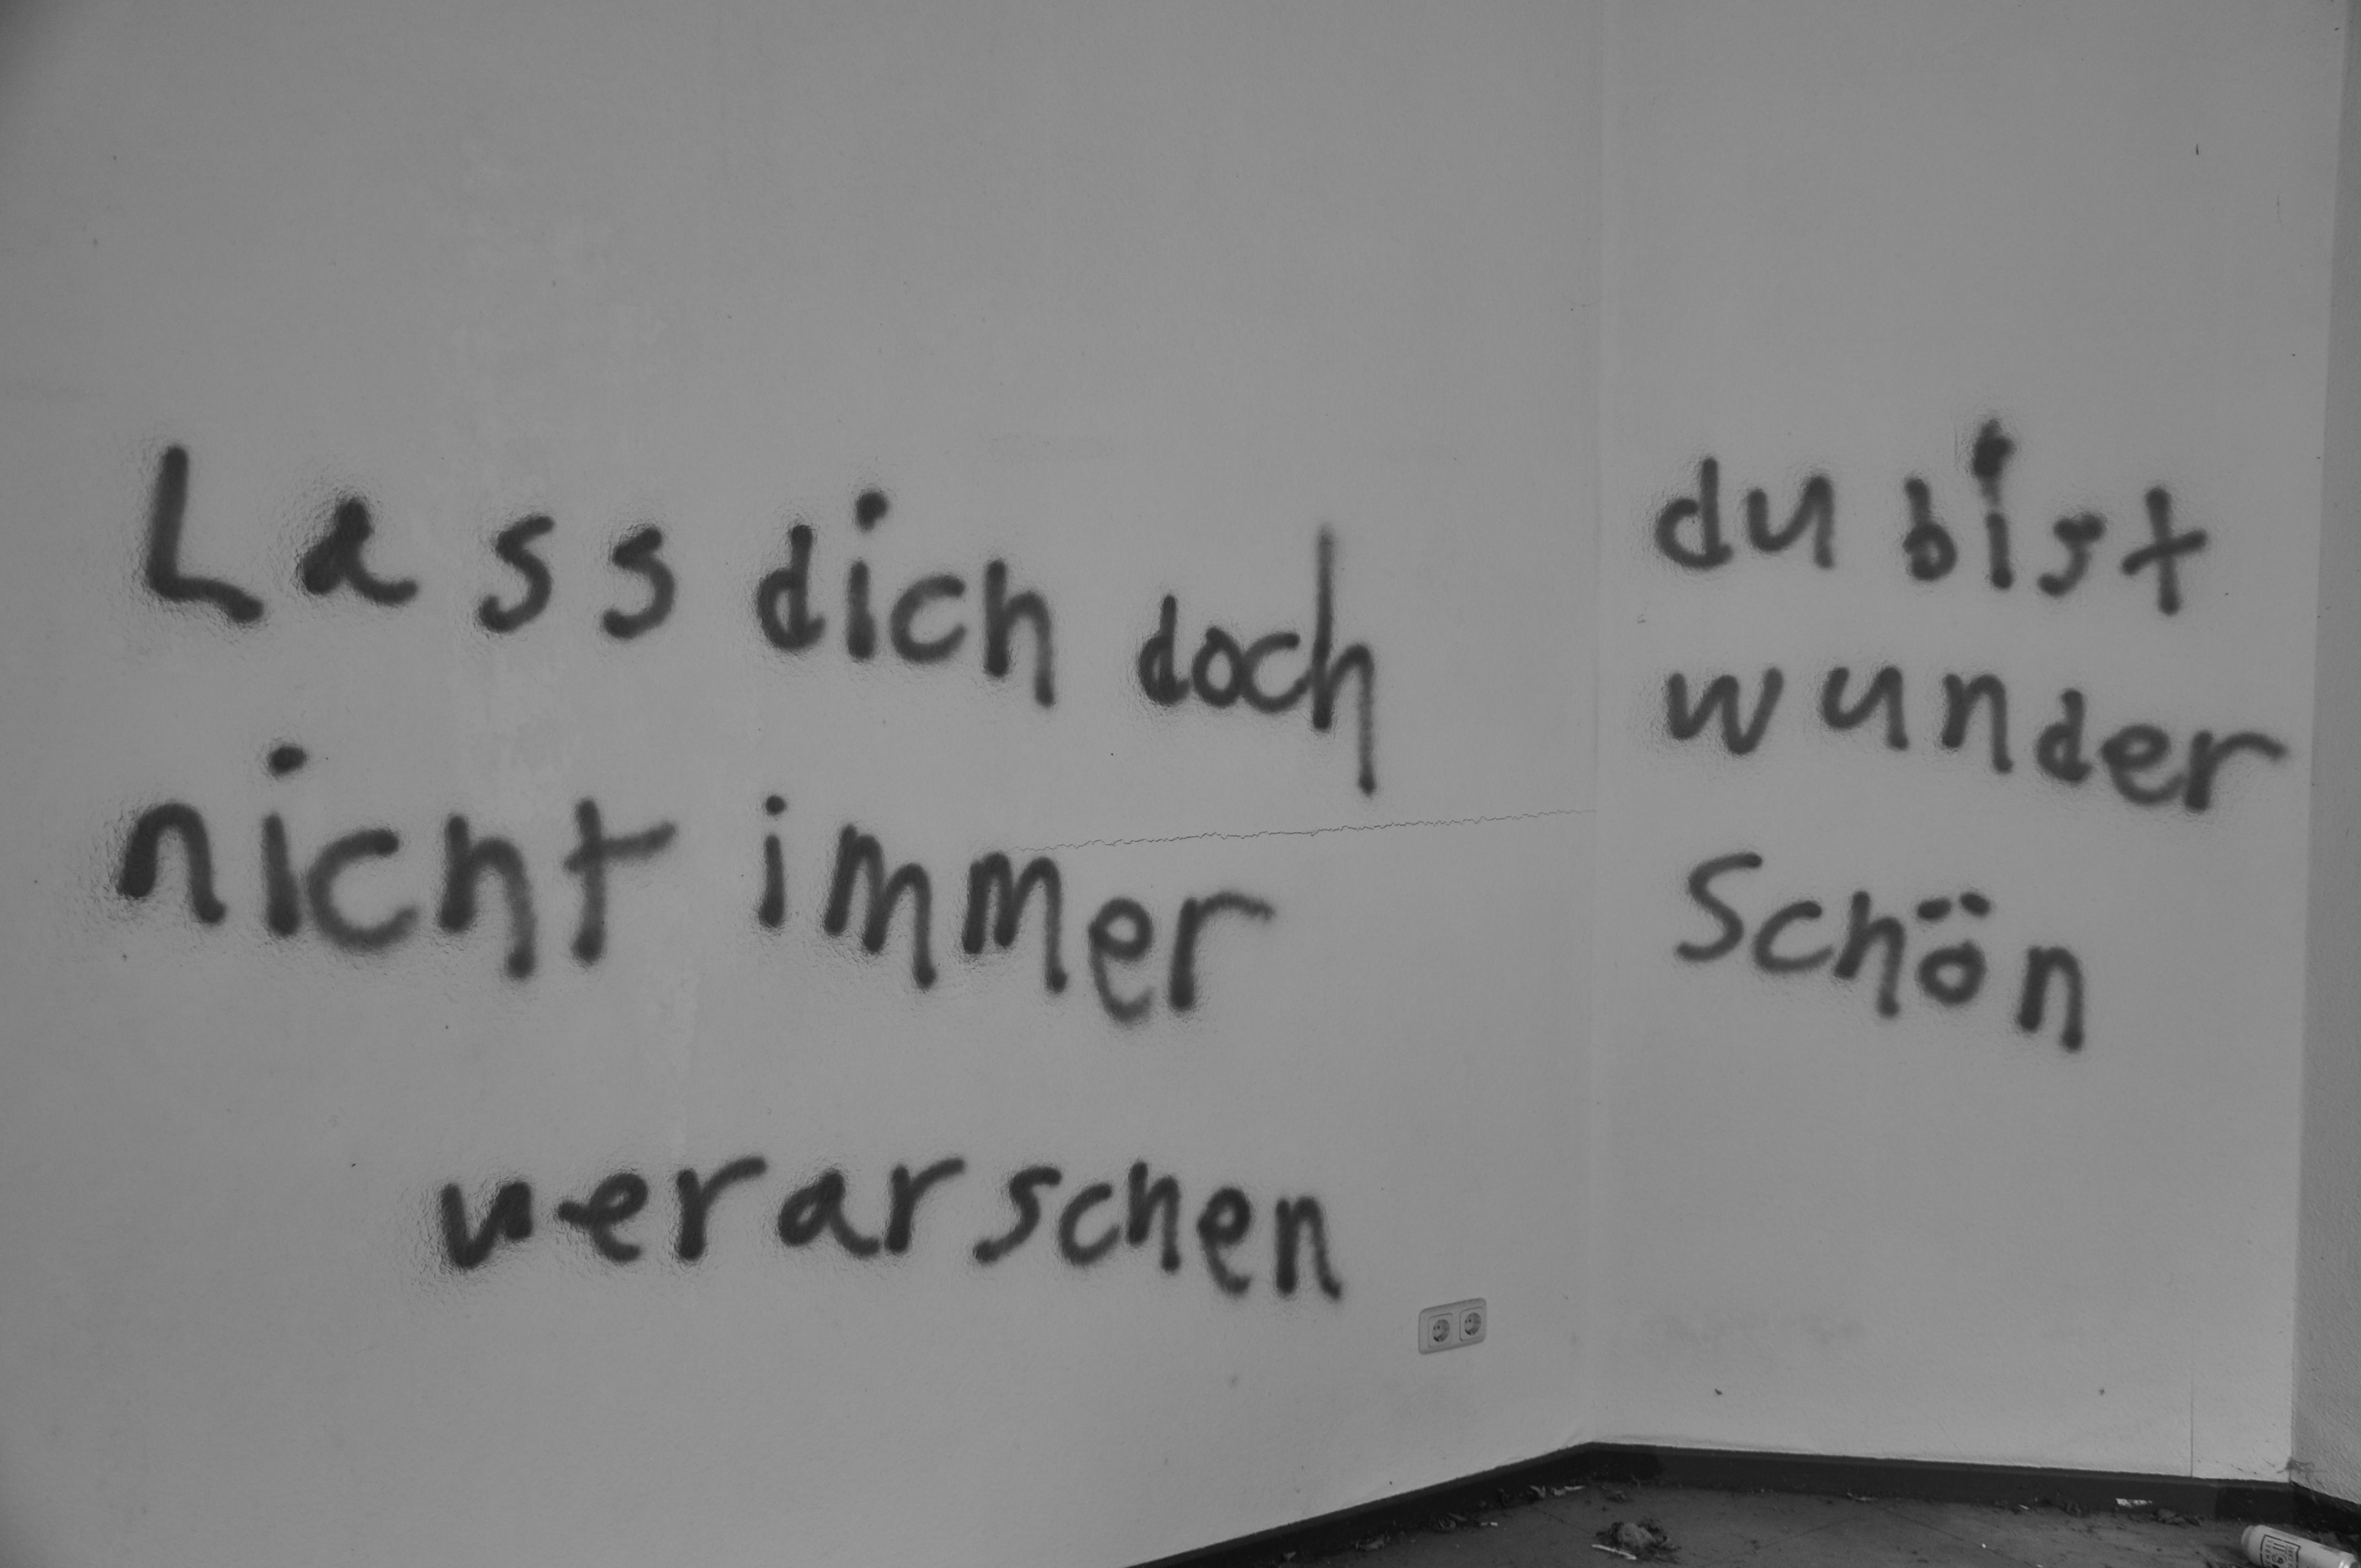 Lass dich doch
nicht immer
verarschen
du bist
wunder
Schön